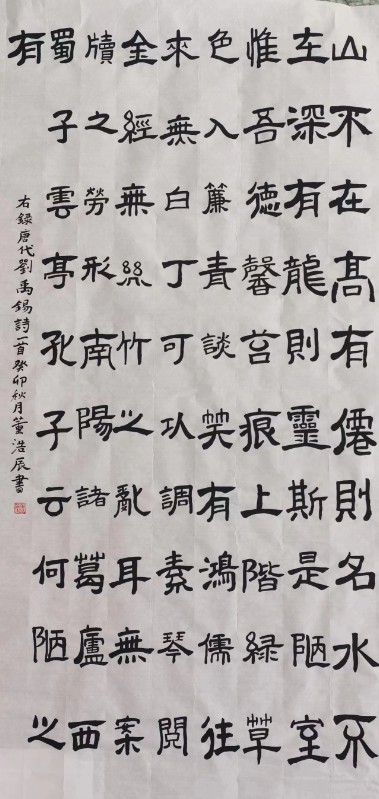 山不在高有僊則名水不
在深有龍則靈斯是陋室
惟吾德馨苔痕上階緑草
色入簾青談笑有鴻儒往
來無白丁可以調素琴閲
金經無絲竹之亂耳無案
牘之勞形南陽諸葛廬西
蜀子雲亭孔子云何陋之
有
右録唐代劉禹錫詩一首癸卯秋月董浩辰書